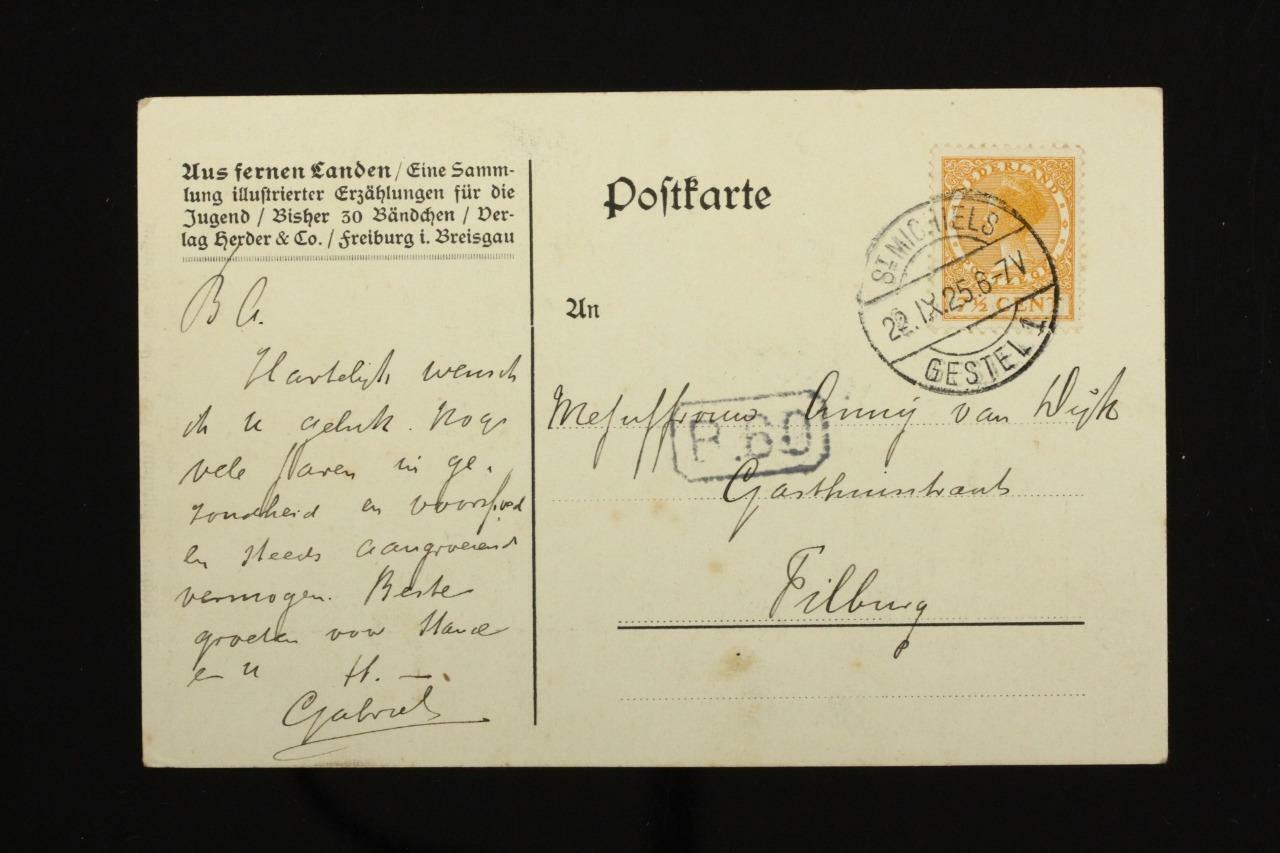 Aus fernen Landen / Eine Samm-
lung illustrierter Erzählungen für die
Jugend / Bisher 30 Bändchen / Ver-
lag Herder & Co. / Freiburg i. Breisgau
B A.
Hartelijk wensch
ik u geluk. Nogs
vele Jaren in ge-
zondheid en voorspoed
en steeds aangroeiend
vermogen. Beste
groeten voor
en u H. —
Gabriel
Postkarte
NEDERLAND
½ CENT
ST MICHIELS
22.IX.25.6-7V
GESTEL 1
An
Mejuffrouw Anny van Dijk
B.60
Gasthuisstraat
Tilburg